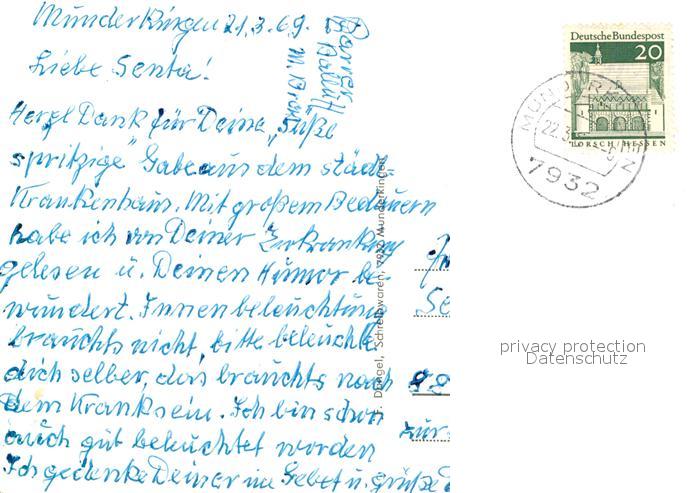 Munderkingen 21.3.69.
Liebe Senta!
Herzl Dank für Deine "süße
spritzige" Gabe aus dem städt.
Krankenhaus. Mit großem Bedauern
habe ich von Deiner Erkrankung
gelesen u. Deinen Humor be-
wundert. Innenbeleuchtung
brauchts nicht, bitte beleuchte
dich selber, das brauchts nach
dem Kranksein. Ich bin schon
auch gut beleuchtet worden
Ich gedenke Deiner im Gebet u. grüße
Schreibwaren, 7932 Munderkingen
Deutsche Bundespost
20
LORSCH/HESSEN
22.3.
7932
zur
privacy protection
Datenschutz